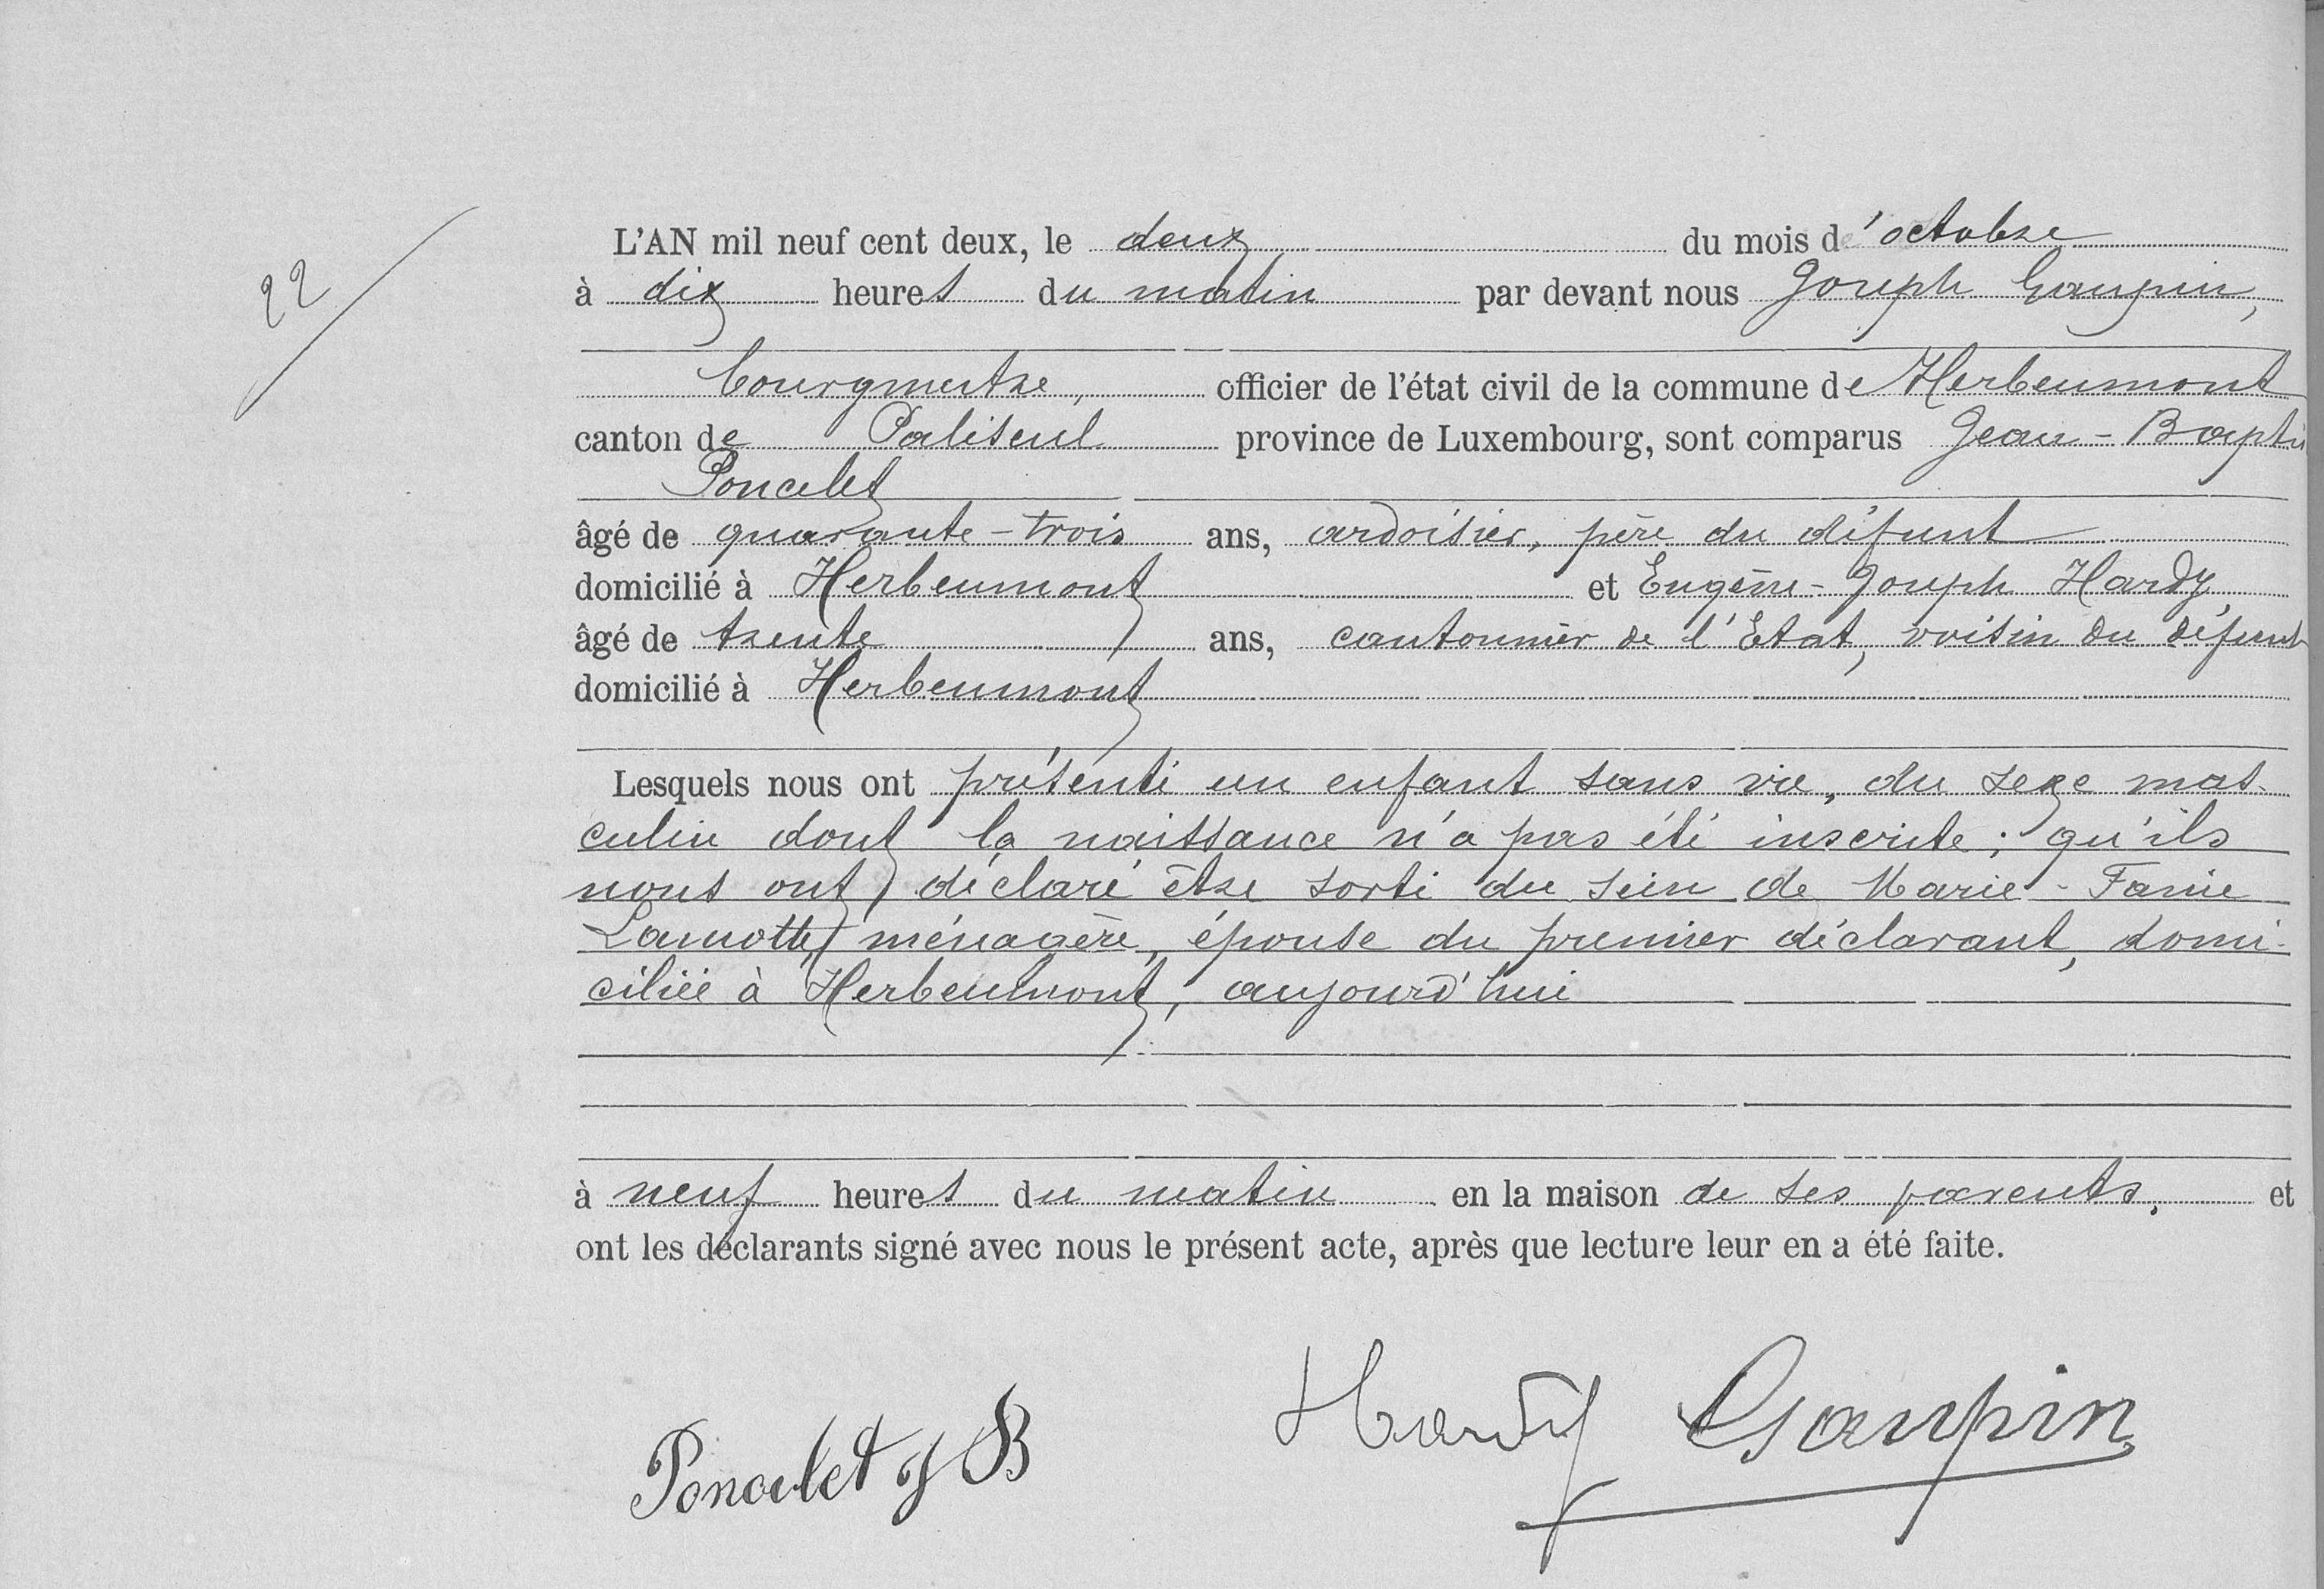 22
L'AN mil neuf cent deux, le deux du mois d'octobre
à dix heures du matin par devant nous Joseph Gaupin,
bourgmestre, officier de l'état civil de la commune de Herbeumont
canton de Paliseul province de Luxembourg, sont comparus Jean-Baptis
Poncelet
âgé de quarante-trois ans, ardoisier, père du défunt
domicilié à Herbeumont et Eugène-Joseph Hardy,
âgé de trente ans, cantonnier de l'Etat, voisin du défunt
domicilié à Herbeumont
Lesquels nous ont présenté un enfant sans vie, du sexe mas-
culin dont la naissance n'a pas été inscrite; qu'ils
nous ont déclaré être sorti du sein de Marie-Fanie
Lamotte, ménagère, épouse du premier déclarant, domi-
ciliée à Herbeumont, aujourd'hui
à neuf heures du matin en la maison de ses parents, et
ont les déclarants signé avec nous le présent acte, après que lecture leur en a été faite.
Poncelet J B Hardy Gaupin